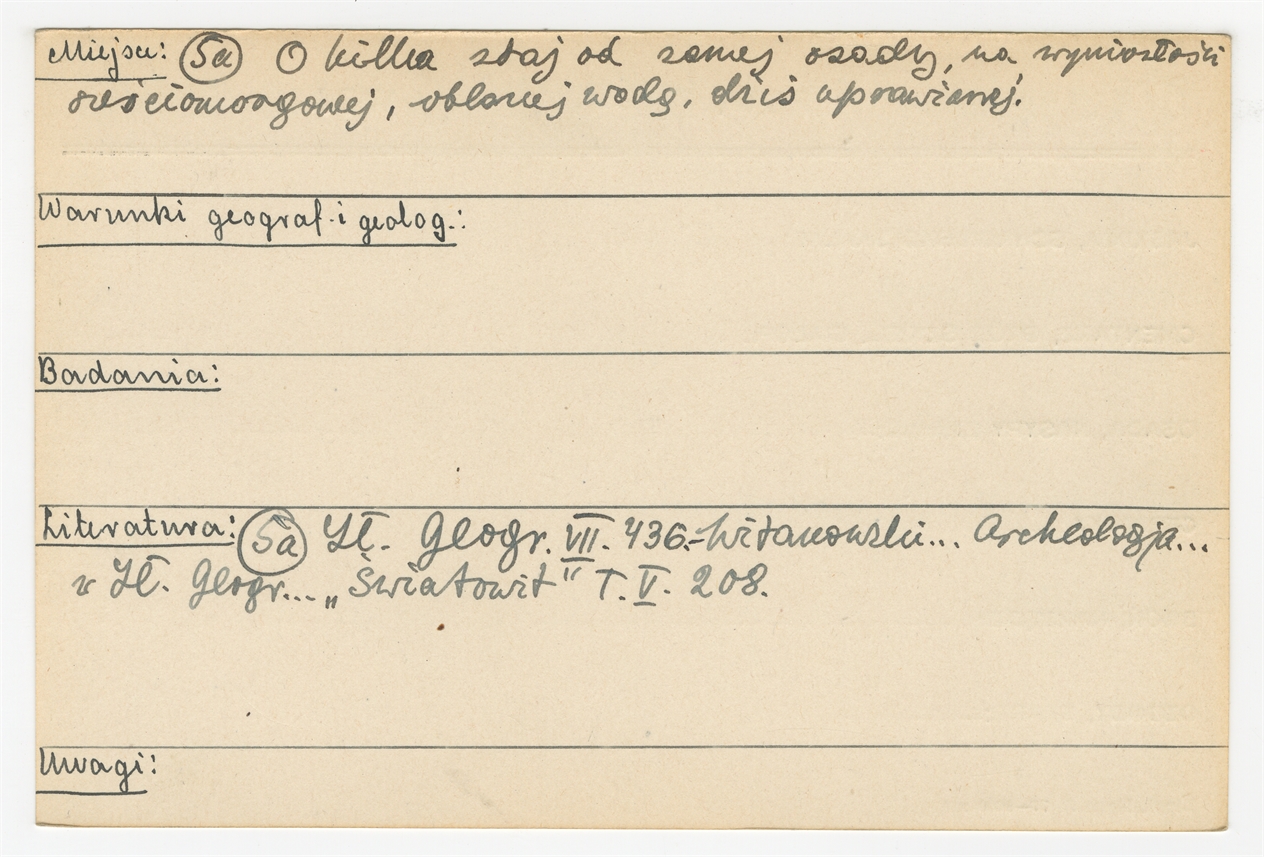 Miejsce: 5a O kilka staj od samej osady, na wyniosłości
sześciomorgowej, oblanej wodą, dziś uprawianej.
Warunki geograf. i geolog.:
Badania:
Literatura: 5a Sł. Geogr. VII. 436.- Witanowski... Archeologja...
w Sł. Geogr... „Światowit" T. V. 208.
Uwagi: